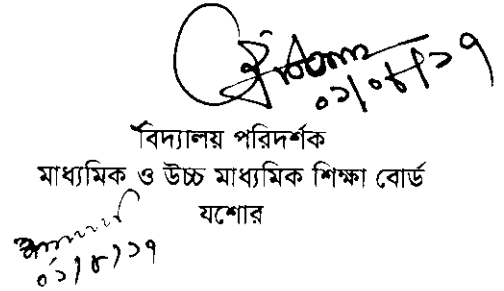 ০১/০৮/১৭
বিদ্যালয় পরিদর্শক
মাধ্যমিক ও উচ্চ মাধ্যমিক শিক্ষা বোর্ড
যশোর
০১/৮/১৭